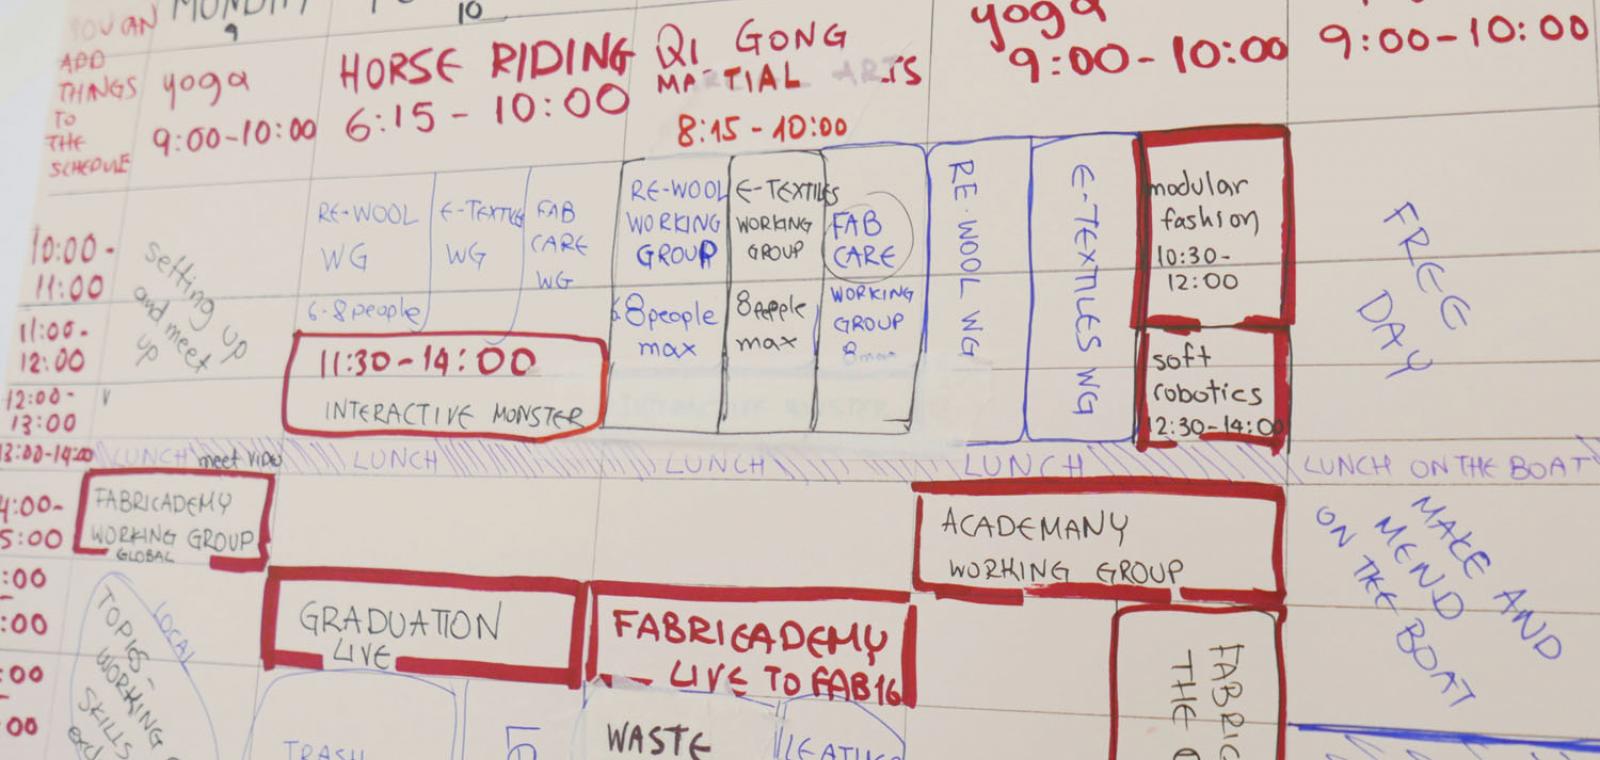 YOU CAN
ADD
THINGS
TO
THE
SCHEDULE
MONDAY
9
10
yoga
9:00-10:00
HORSE RIDING
6:15 - 10:00
QI GONG
MARTIAL ARTS
8:15-10:00
yoga
9:00-10:00
9:00-10:00
10:00-
11:00
11:00-
12:00
12:00-
13:00
13:00-14:00
4:00-
5:00
:00
:00
:00
:00
setting up
and meet
up
RE-WOOL
WG
6-8 people
E-TEXTILE
WG
FAB
CARE
WG
11:30-14:00
INTERACTIVE MONSTER
RE-WOOL
WORKING
GROUP
8 people
max
E-TEXTILES
WORKING
GROUP
8 people
max
FAB
CARE
WORKING
GROUP
8 max
RE-WOOL WG
E-TEXTILES WG
modular
fashion
10:30-
12:00
soft
robotics
12:30-14:00
FREE
DAY
LUNCH
meet VIDU
LUNCH
LUNCH
LUNCH
LUNCH ON THE BOAT
FABRICADEMY
WORKING GROUP
GLOBAL
GRADUATION
LIVE
FABRICADEMY
LIVE TO FAB16
ACADEMANY
WORKING GROUP
MAKE AND
MEND
ON THE BOAT
LOCAL
TOPICS-
WORKING
SKILLS
TRASH
WASTE
LEATHER
FABRIC
THE